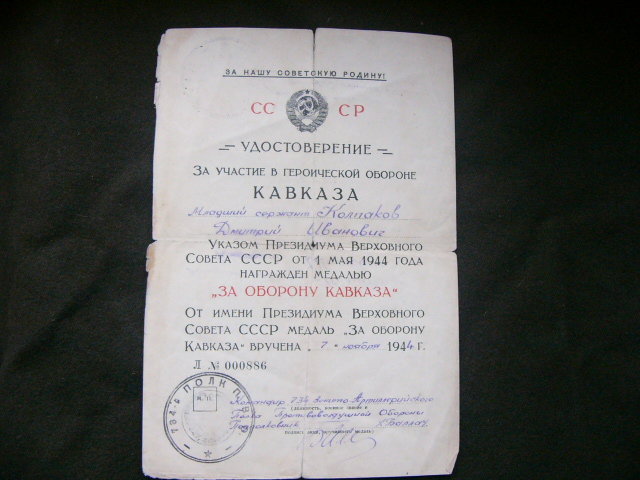 ЗА НАШУ СОВЕТСКУЮ РОДИНУ!
СС СР
УДОСТОВЕРЕНИЕ
ЗА УЧАСТИЕ В ГЕРОИЧЕСКОЙ ОБОРОНЕ
КАВКАЗА
Младший сержант Колпаков
Дмитрий Иванович
УКАЗОМ ПРЕЗИДИУМА ВЕРХОВНОГО
СОВЕТА СССР ОТ 1 МАЯ 1944 ГОДА
НАГРАЖДЕН МЕДАЛЬЮ
„ЗА ОБОРОНУ КАВКАЗА“
ОТ ИМЕНИ ПРЕЗИДИУМА ВЕРХОВНОГО
СОВЕТА СССР МЕДАЛЬ „ЗА ОБОРОНУ
КАВКАЗА“ ВРУЧЕНА „ 7 " ноября 1944 г.
Л № 000886
Командир 734 Зенитно Артиллерийского
Полка Противовоздушной Обороны
Подполковник
734-й ПОЛК ПВО